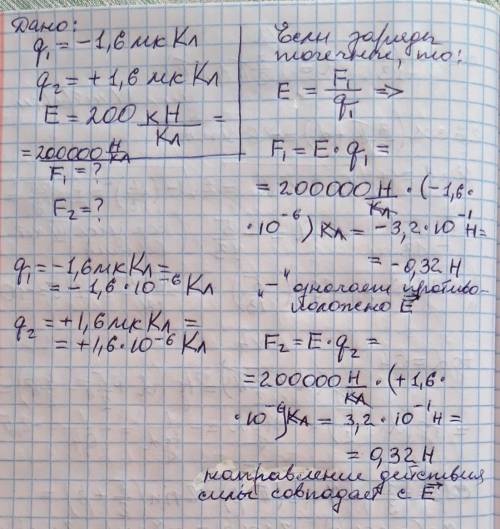 Дано:
q₁ = -1,6 мкКл
q₂ = +1,6 мкКл
E = 200 кН/Кл =
= 200000 Н/Кл
F₁ = ?
F₂ = ?
q₁ = -1,6мкКл =
= -1,6·10⁻⁶ Кл
q₂ = +1,6 мкКл =
= +1,6·10⁻⁶ Кл
Если заряды
точечные, то:
E = F₁/q₁ =>
F₁ = E·q₁ =
= 200000 Н/Кл · (-1,6·
·10⁻⁶) Кл = -3,2·10⁻¹ Н =
= -0,32 Н
„-“ означает противо-
положено E⃗
F₂ = E·q₂ =
= 200000 Н/Кл · (+1,6·
·10⁻⁶)Кл = 3,2·10⁻¹ Н =
= 0,32 Н
направление действия
силы совпадает с E⃗